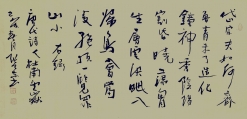 岱宗夫如何齊
魯青未了造化
鍾神秀陰陽
割昏曉蕩胸
生層雲決眦入
歸鳥會當
凌絕頂一覽眾
山小
唐代詩人杜甫望嶽